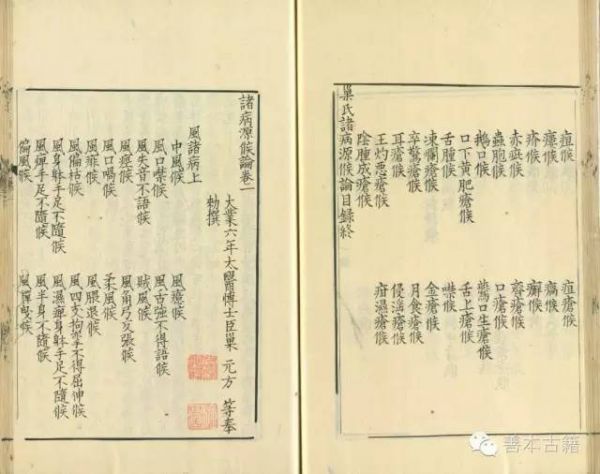 疽候 疽瘡候
瘻候 瘑候
疥候 癬候
赤疵候 臍瘡候
蟲胞候 口瘡候
鵝口候 鷰口生瘡候
口下黃肥瘡候 舌上瘡候
舌腫候 噤候
凍爛瘡候 金瘡候
卒驚瘡候 月食瘡候
耳瘡候 侵淫瘡候
王灼惡瘡候 疳濕瘡候
陰腫成瘡候
巢氏諸病源候論目録終
諸病源候論卷一
大業六年太醫博士臣巢 元方 等奉
勑撰
風諸病上
中風候 風癔候
風口噤候 風舌強不得語候
風失音不語候 賊風候
風痙候 風角弓反張候
風口喎候 柔風候
風痱候 風腲退候
風偏枯候 風四支拘攣不得屈伸候
風身躰手足不隨候 風濕痹身躰手足不隨候
風痹手足不隨候 風半身不隨候
偏風候 風嚲曳候
善本古籍